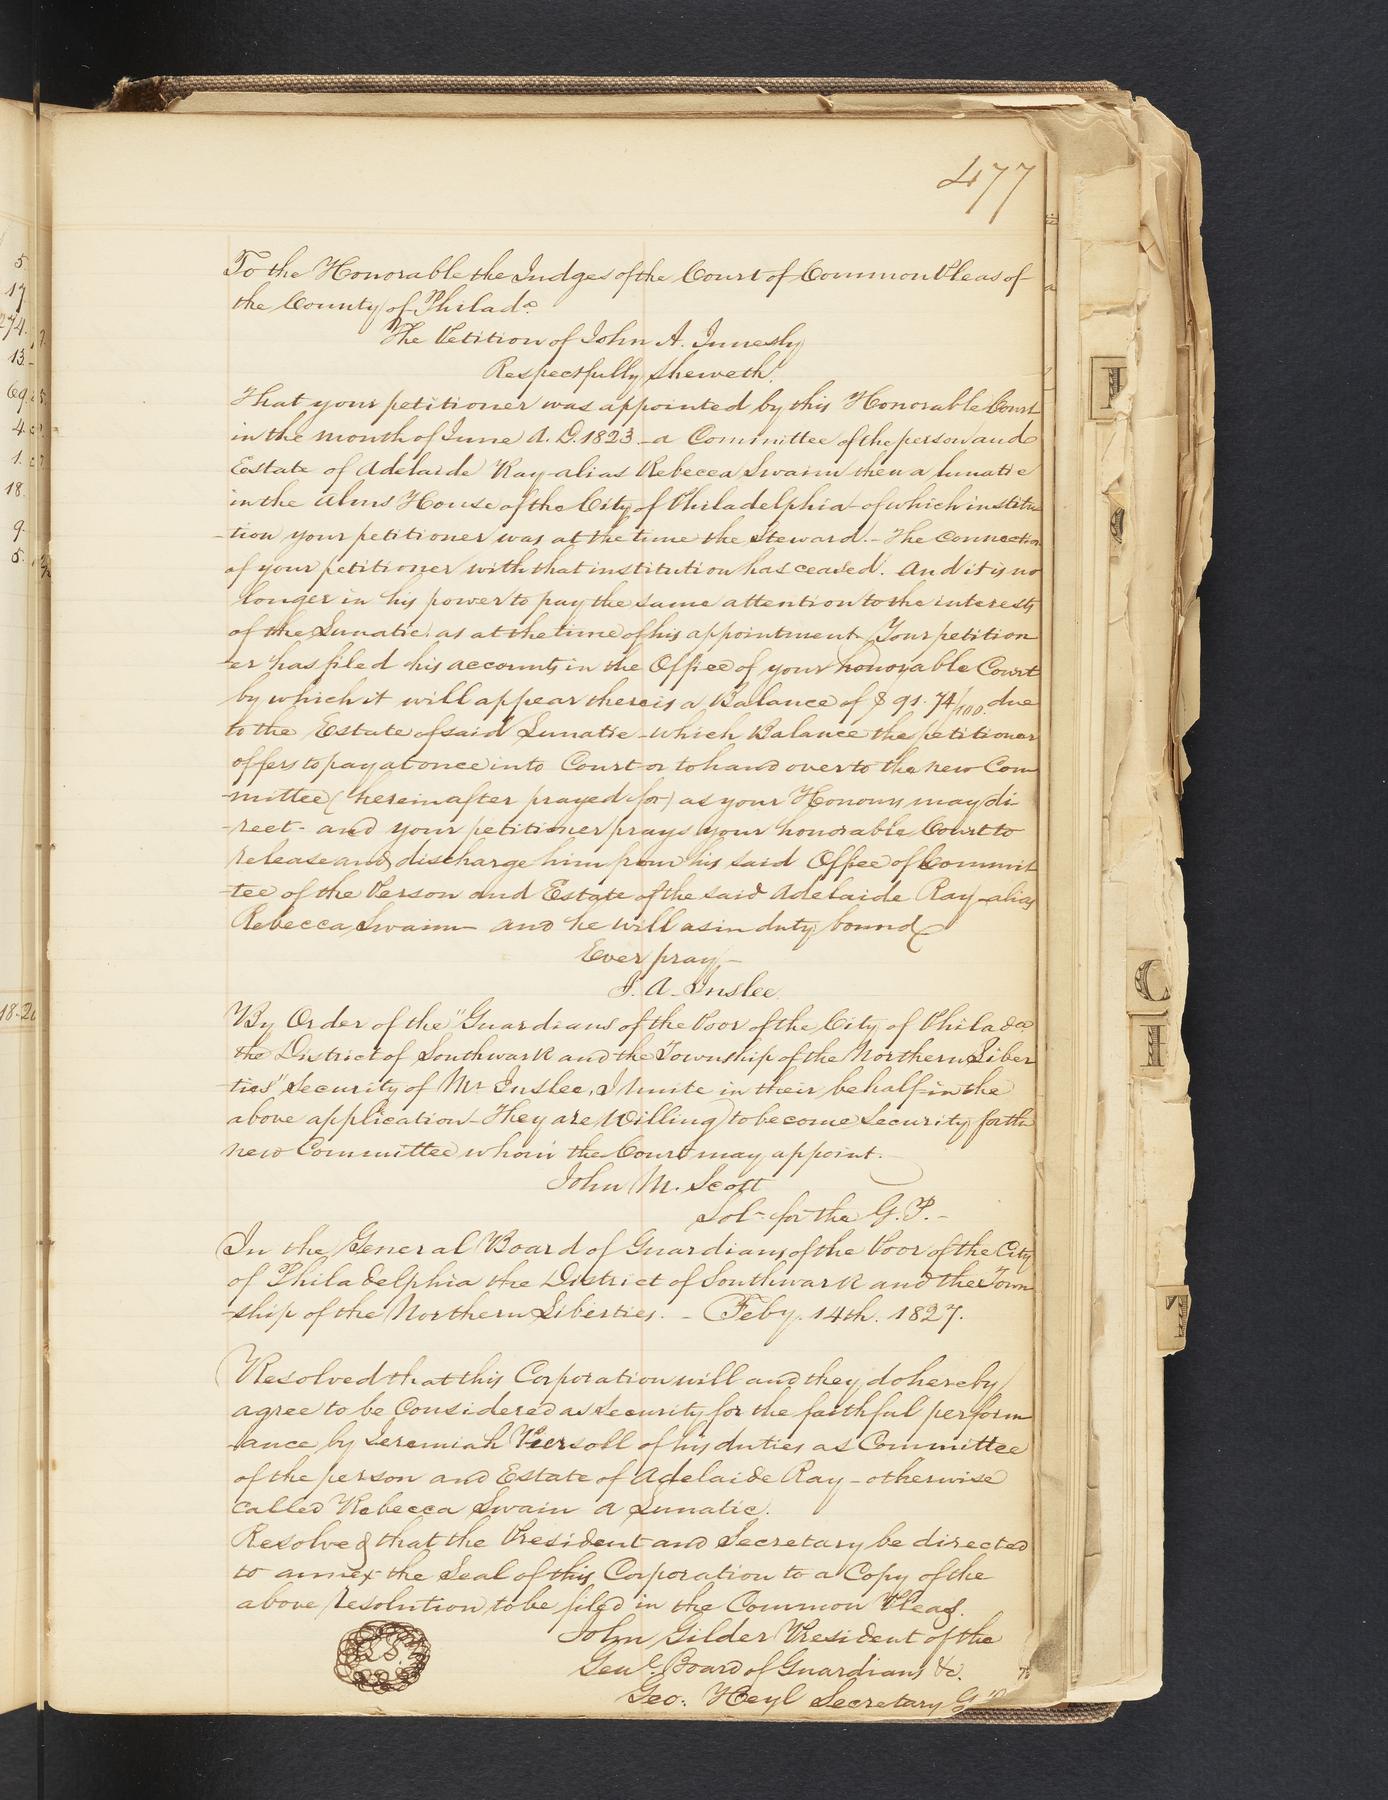 477
To the Honorable the Judges of the Court of Common Pleas of
the County of Philada.
The Petition of John A. Innesly
Respectfully sheweth,
That your petitioner was appointed by this Honorable Court
in the month of June A. D. 1823 - a Committee of the person and
Estate of Adelaide Ray - alias Rebecca Swaim then a lunatic
in the Alms House of the City of Philadelphia - of which institu
-tion your petitioner was at the time the Steward. - The connection
of your petitioner with that institution has ceased. And it is no
longer in his power to pay the same attention to the interests
of the Lunatic as at the time of his appointment. Your petition
-er has filed his accounts in the Office of your honorable Court
by which it will appear there is a Balance of $ 91. 74/100. due
to the Estate of said Lunatic - which Balance the petitioner
offers to pay at once into Court or to hand over to the new Com
-mittee (hereinafter prayed for) as your Honours may di-
-rect - and your petitioner prays your honorable Court to
release and discharge him from his said Office of Commit
-tee of the Person and Estate of the said Adelaide Ray - alias
Rebecca Swaim - and he will as in duty bound
Ever pray, -
J. A. Inslee.
By Order of the "Guardians of the Poor of the City of Philada
the District of Southwark and the Township of the Northern Liber
-ties" security of Mr Inslee, I unite in their behalf in the
above application - They are willing to become security for the
new Committee whom the Court may appoint.
John M. Scott
Solr for the G. P. -
In the General Board of Guardians of the Poor of the City
of Philadelphia the District of Southwark and the Town
-ship of the Northern Liberties. - Feby. 14th. 1827.
Resolved that this Corporation will and they do hereby
agree to be Considered as security for the faithful perform
-ance by Jeremiah Piersoll of his duties as Committee
of the person and Estate of Adelaide Ray - otherwise
called Rebecca Swain a Lunatic.
Resolved that the President and Secretary be directed
to annex the Seal of this Corporation to a Copy of the
above resolution to be filed in the Common Pleas.
John Gilder President of the
L. S.
Genl. Board of Guardians &c.
Geo. Heyl Secretary G.
5
17
274.
13
69
4
1.
18.
9.
5.
18-20